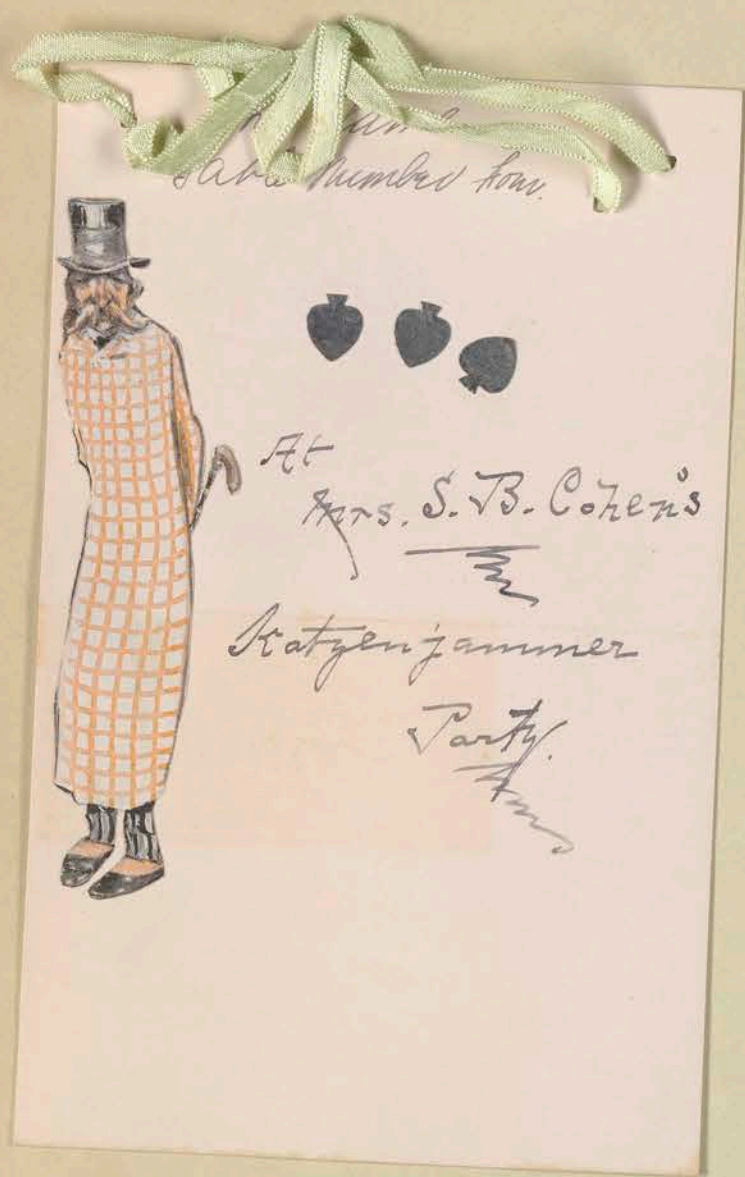 Table Number Four.
At
Mrs. S. B. Cohen's
Katzenjammer
Party.